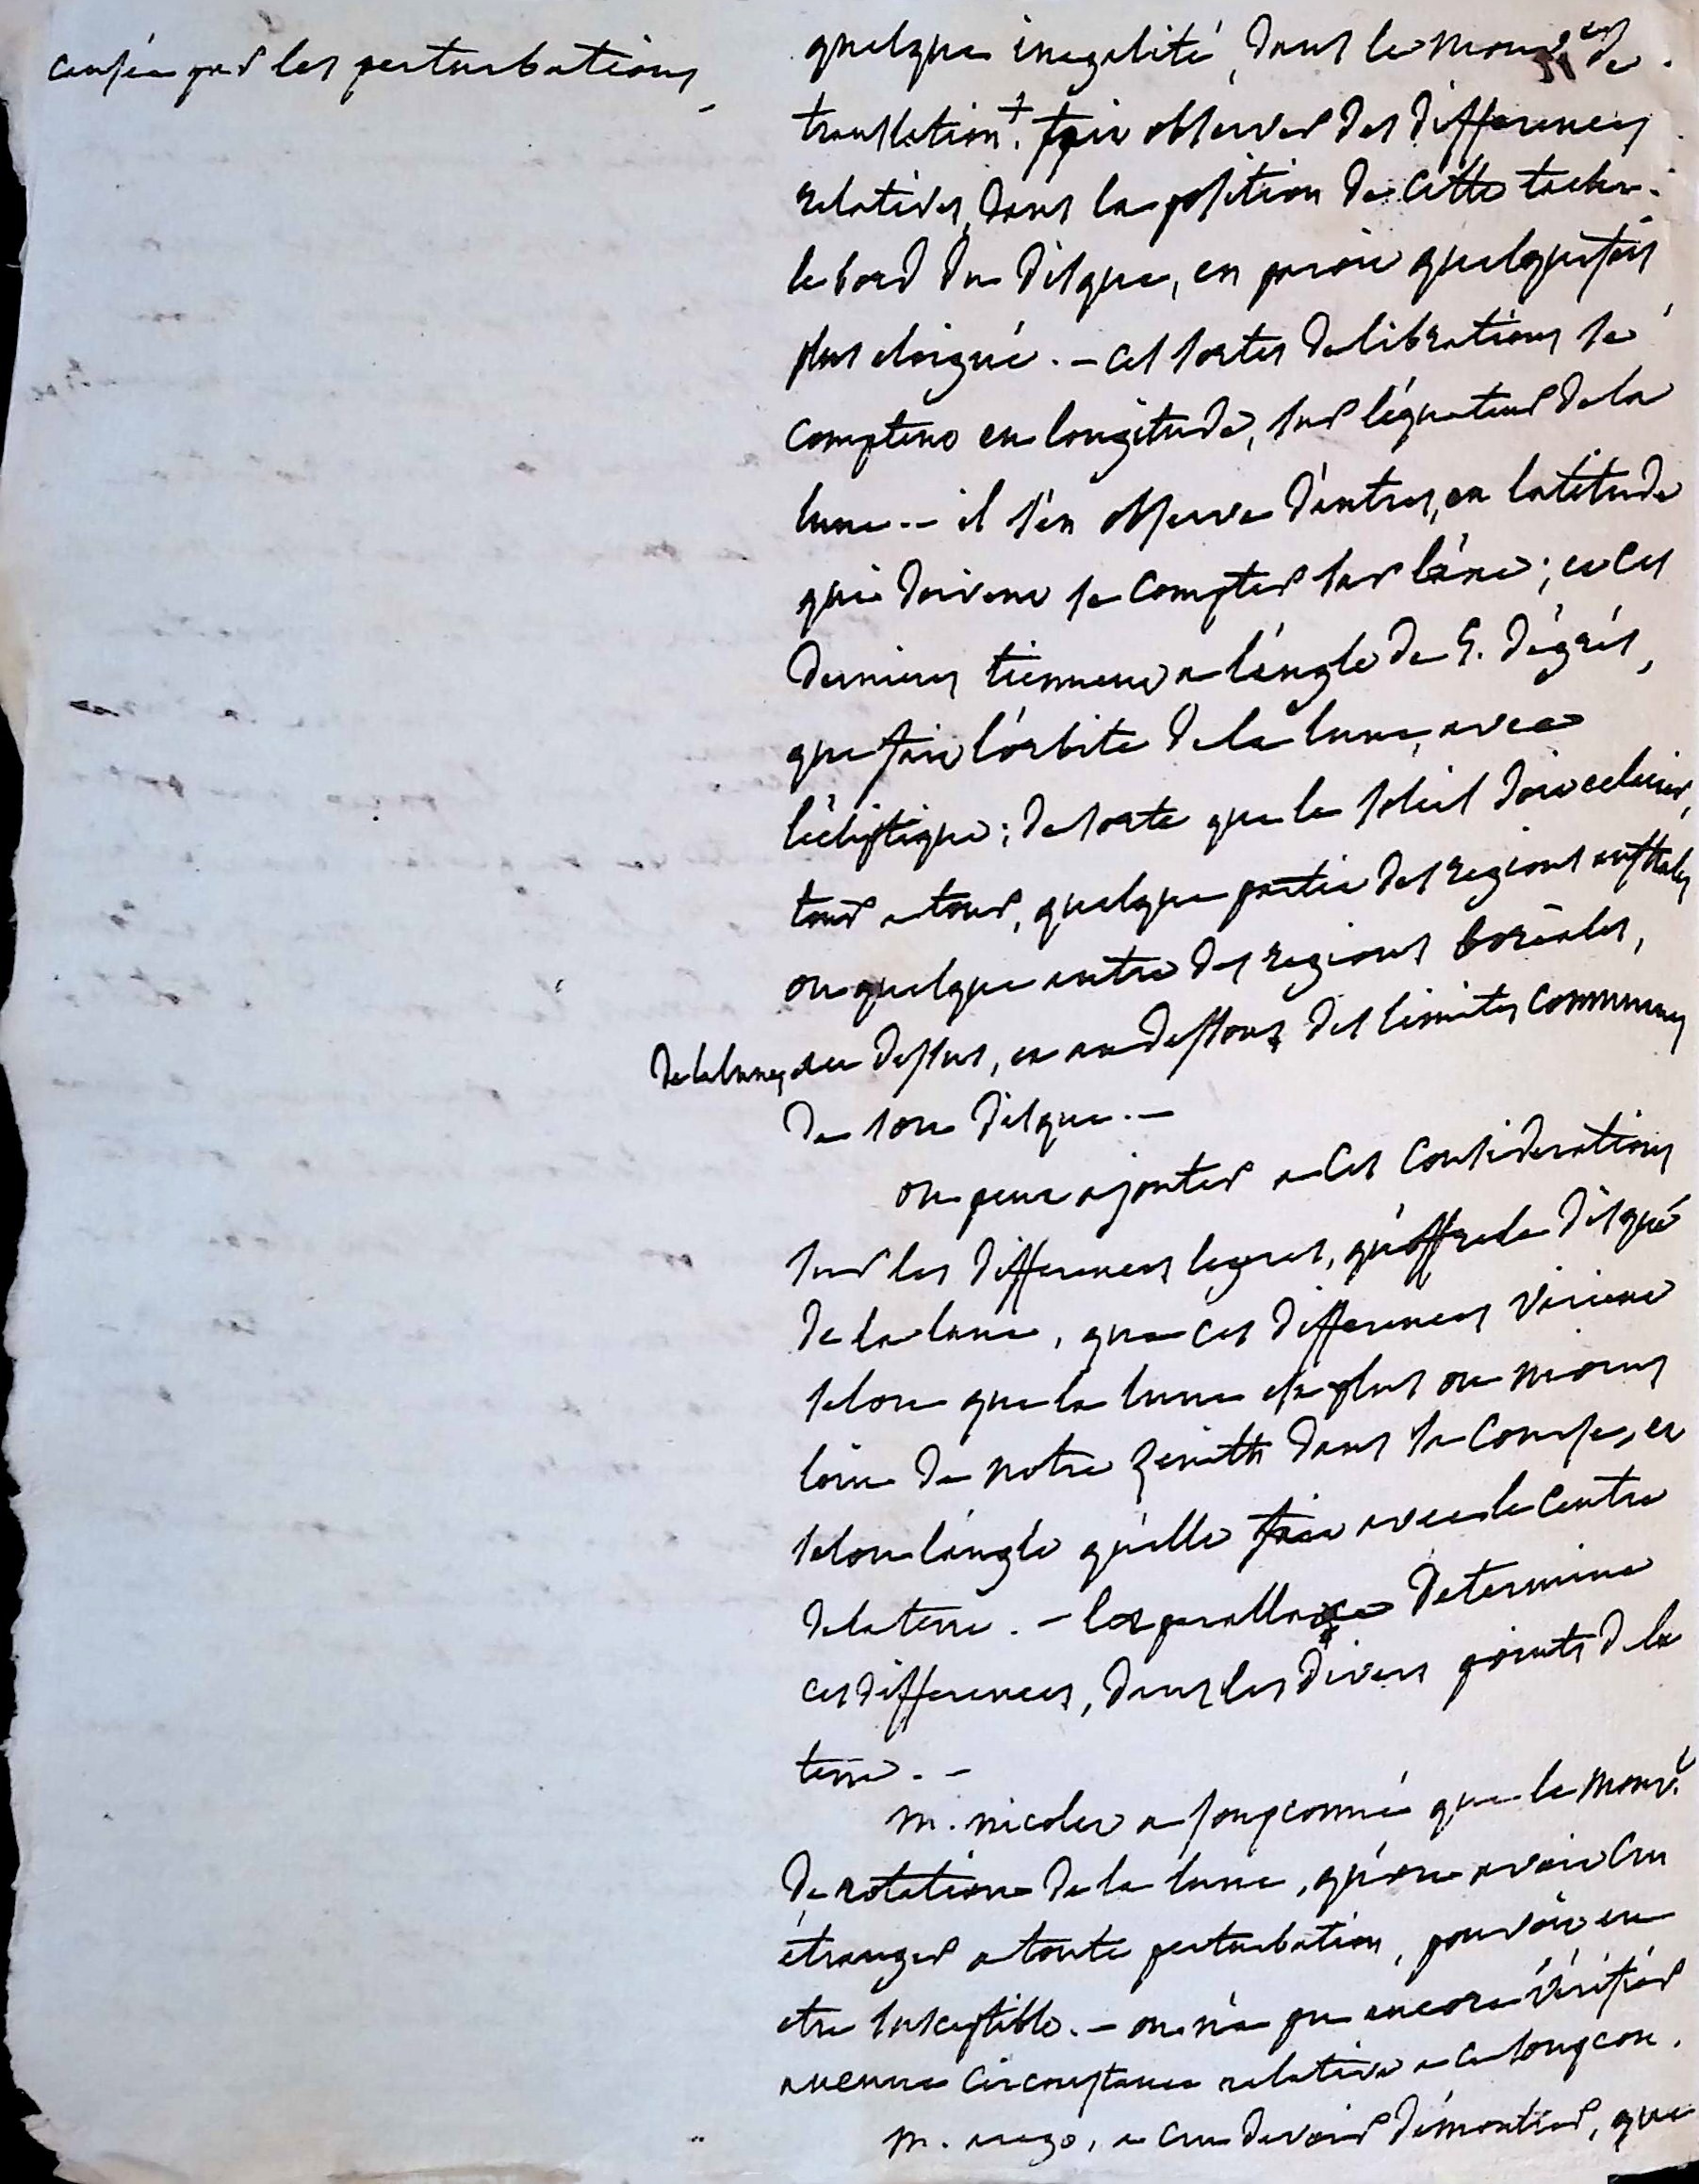 causée par les perturbations
quelque inegalité, dans le mouvent de
translation + fait observer des differences
relatives, dans la position de cette tache.
le bord du disque, en paroit quelquefois
plus eloigné. - ces sortes de librations se
comptent en longitude, sur l'équateur de la
lune. - il s'en observe d'autres, en latitude
qui doivent se compter sur l'axe ; et ces
dernieres tiennent a l'angle de 5. dégrés,
que fait l'orbite de la lune, avec
l'écliptique ; de sorte que le soleil doit eclairer,
tour a tour, quelque partie des regions australes
ou quelque autre des regions boréales,
de la lune, au dessus, et au dessous des limites communes
de son disque. -
on peut ajouter a ces considerations
sur les differences legeres, qu'offre le disque
de la lune, que ces differences varient
selon que la lune est plus ou moins
loin de notre zenith dans sa course, et
selon l'angle qu'elle fait avec le centre
de la terre. - la parallaxe determine
ces differences, dans les divers points de la
terre. -
m. nicolet a soupçonné que le mouvt
de rotation de la lune, qu'on avoit cru
étranger a toute perturbation, pouvoit en
etre susceptible. - on n'a pu encore vérifier
aucune circonstance relative a ce soupçon.
m. arago, a cru devoir démontrer, que